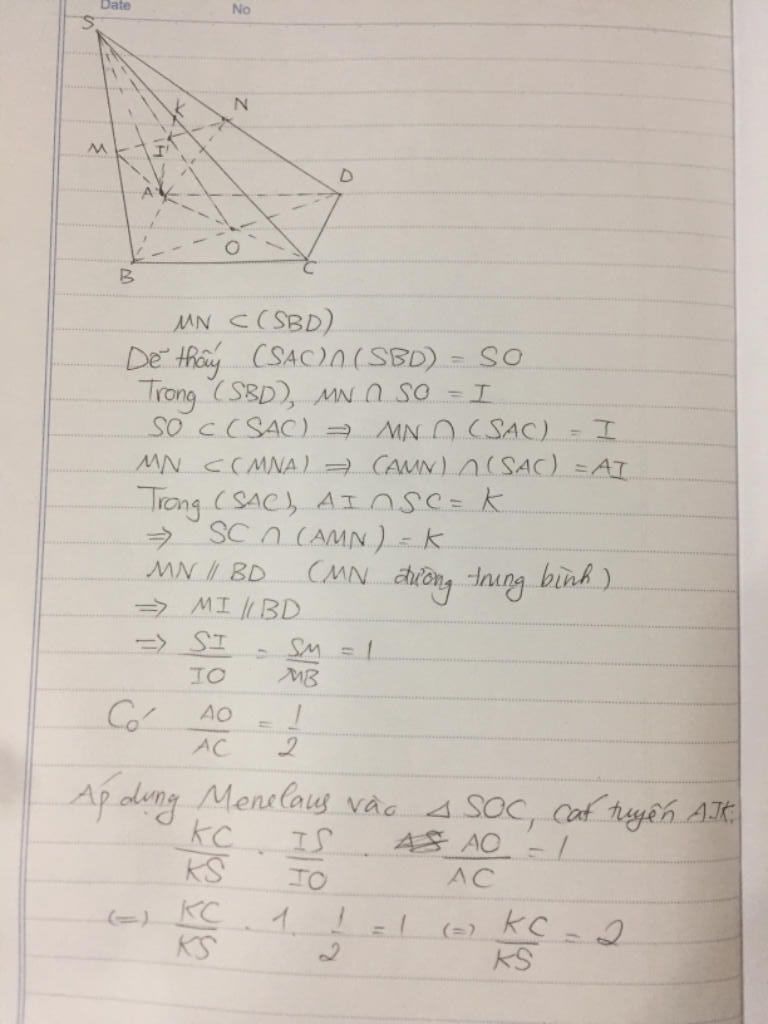 Date No
S
K N
M I
A D
O
B C
MN ⊂ (SBD)
Dễ thấy (SAC) ∩ (SBD) = SO
Trong (SBD), MN ∩ SO = I
SO ⊂ (SAC) ⇒ MN ∩ (SAC) = I
MN ⊂ (MNA) ⇒ (AMN) ∩ (SAC) = AI
Trong (SAC), AI ∩ SC = K
⇒ SC ∩ (AMN) = K
MN // BD (MN đường trung bình)
⇒ MI // BD
⇒ SI/IO = SM/MB = 1
Có AO/AC = 1/2
Áp dụng Menelaus vào △ SOC, cát tuyến AIK:
KC/KS . IS/IO . AO/AC = 1
(=) KC/KS . 1. 1/2 = 1 (=) KC/KS = 2